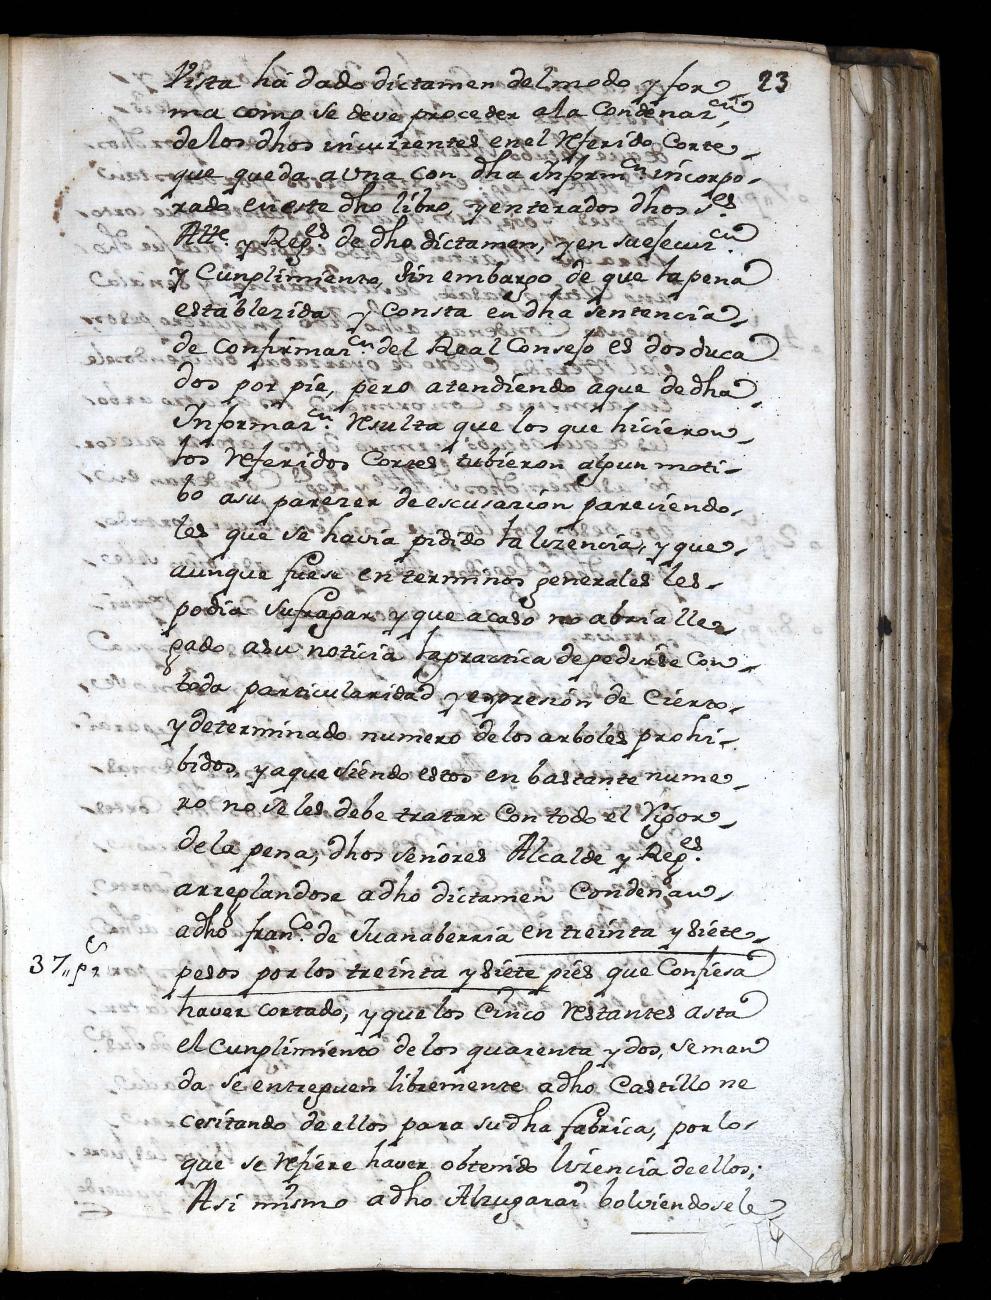 23
Vista há dado dictamen del modo y for-
ma como se deve proceder ala Condenaz.on
de los dhos incurrentes en el Referido Corte
que queda auna con dha Inform.on incorpo-
rado en este dho libro, y enterados dhos s.es
Alle. y Reg.es de dho dictamen, y en su efecuz.on
y Cunplimiento, sin embargo de que la pena
establezida y Consta en dha sentencia
de confirmaz.on del Real Consejo es dos duca
dos por pie, pero atendiendo aque de dha
Informaz.on Resulta que los que hicieron
los Referidos Cortes tubieron algun moti-
bo asu parezer de escusazion pareciendo-
les que se havia pidido la lizencia, y que
aunque fuese en terminos generales les
podia sufragar y que acaso no abria lle-
gado asu noticia la practica de pedirse Con
toda particularidad y expresion de Cierto
y determinado numero de los arboles prohi-
bidos, y aque siendo estos en bastante nume-
ro no se les debe tratar Con todo el Rigor
de la pena, dhos señores Alcalde y Reg.es
arreglandose adho dictamen Condenan
adho fran.co de Juanaberria en treinta y siete
37,, p.s pesos por los treinta y siete pies que Confiesa
haver cortado, y que los Cinco Restantes asta
el Cunplimiento de los quarenta y dos, se man
da se entreguen libremente adho Castillo ne
cesitando de ellos para su dha fabrica, por lo
que se Refiere haver obtenido lizencia de ellos;
Asi mismo adho Alzugarai bolviendosele